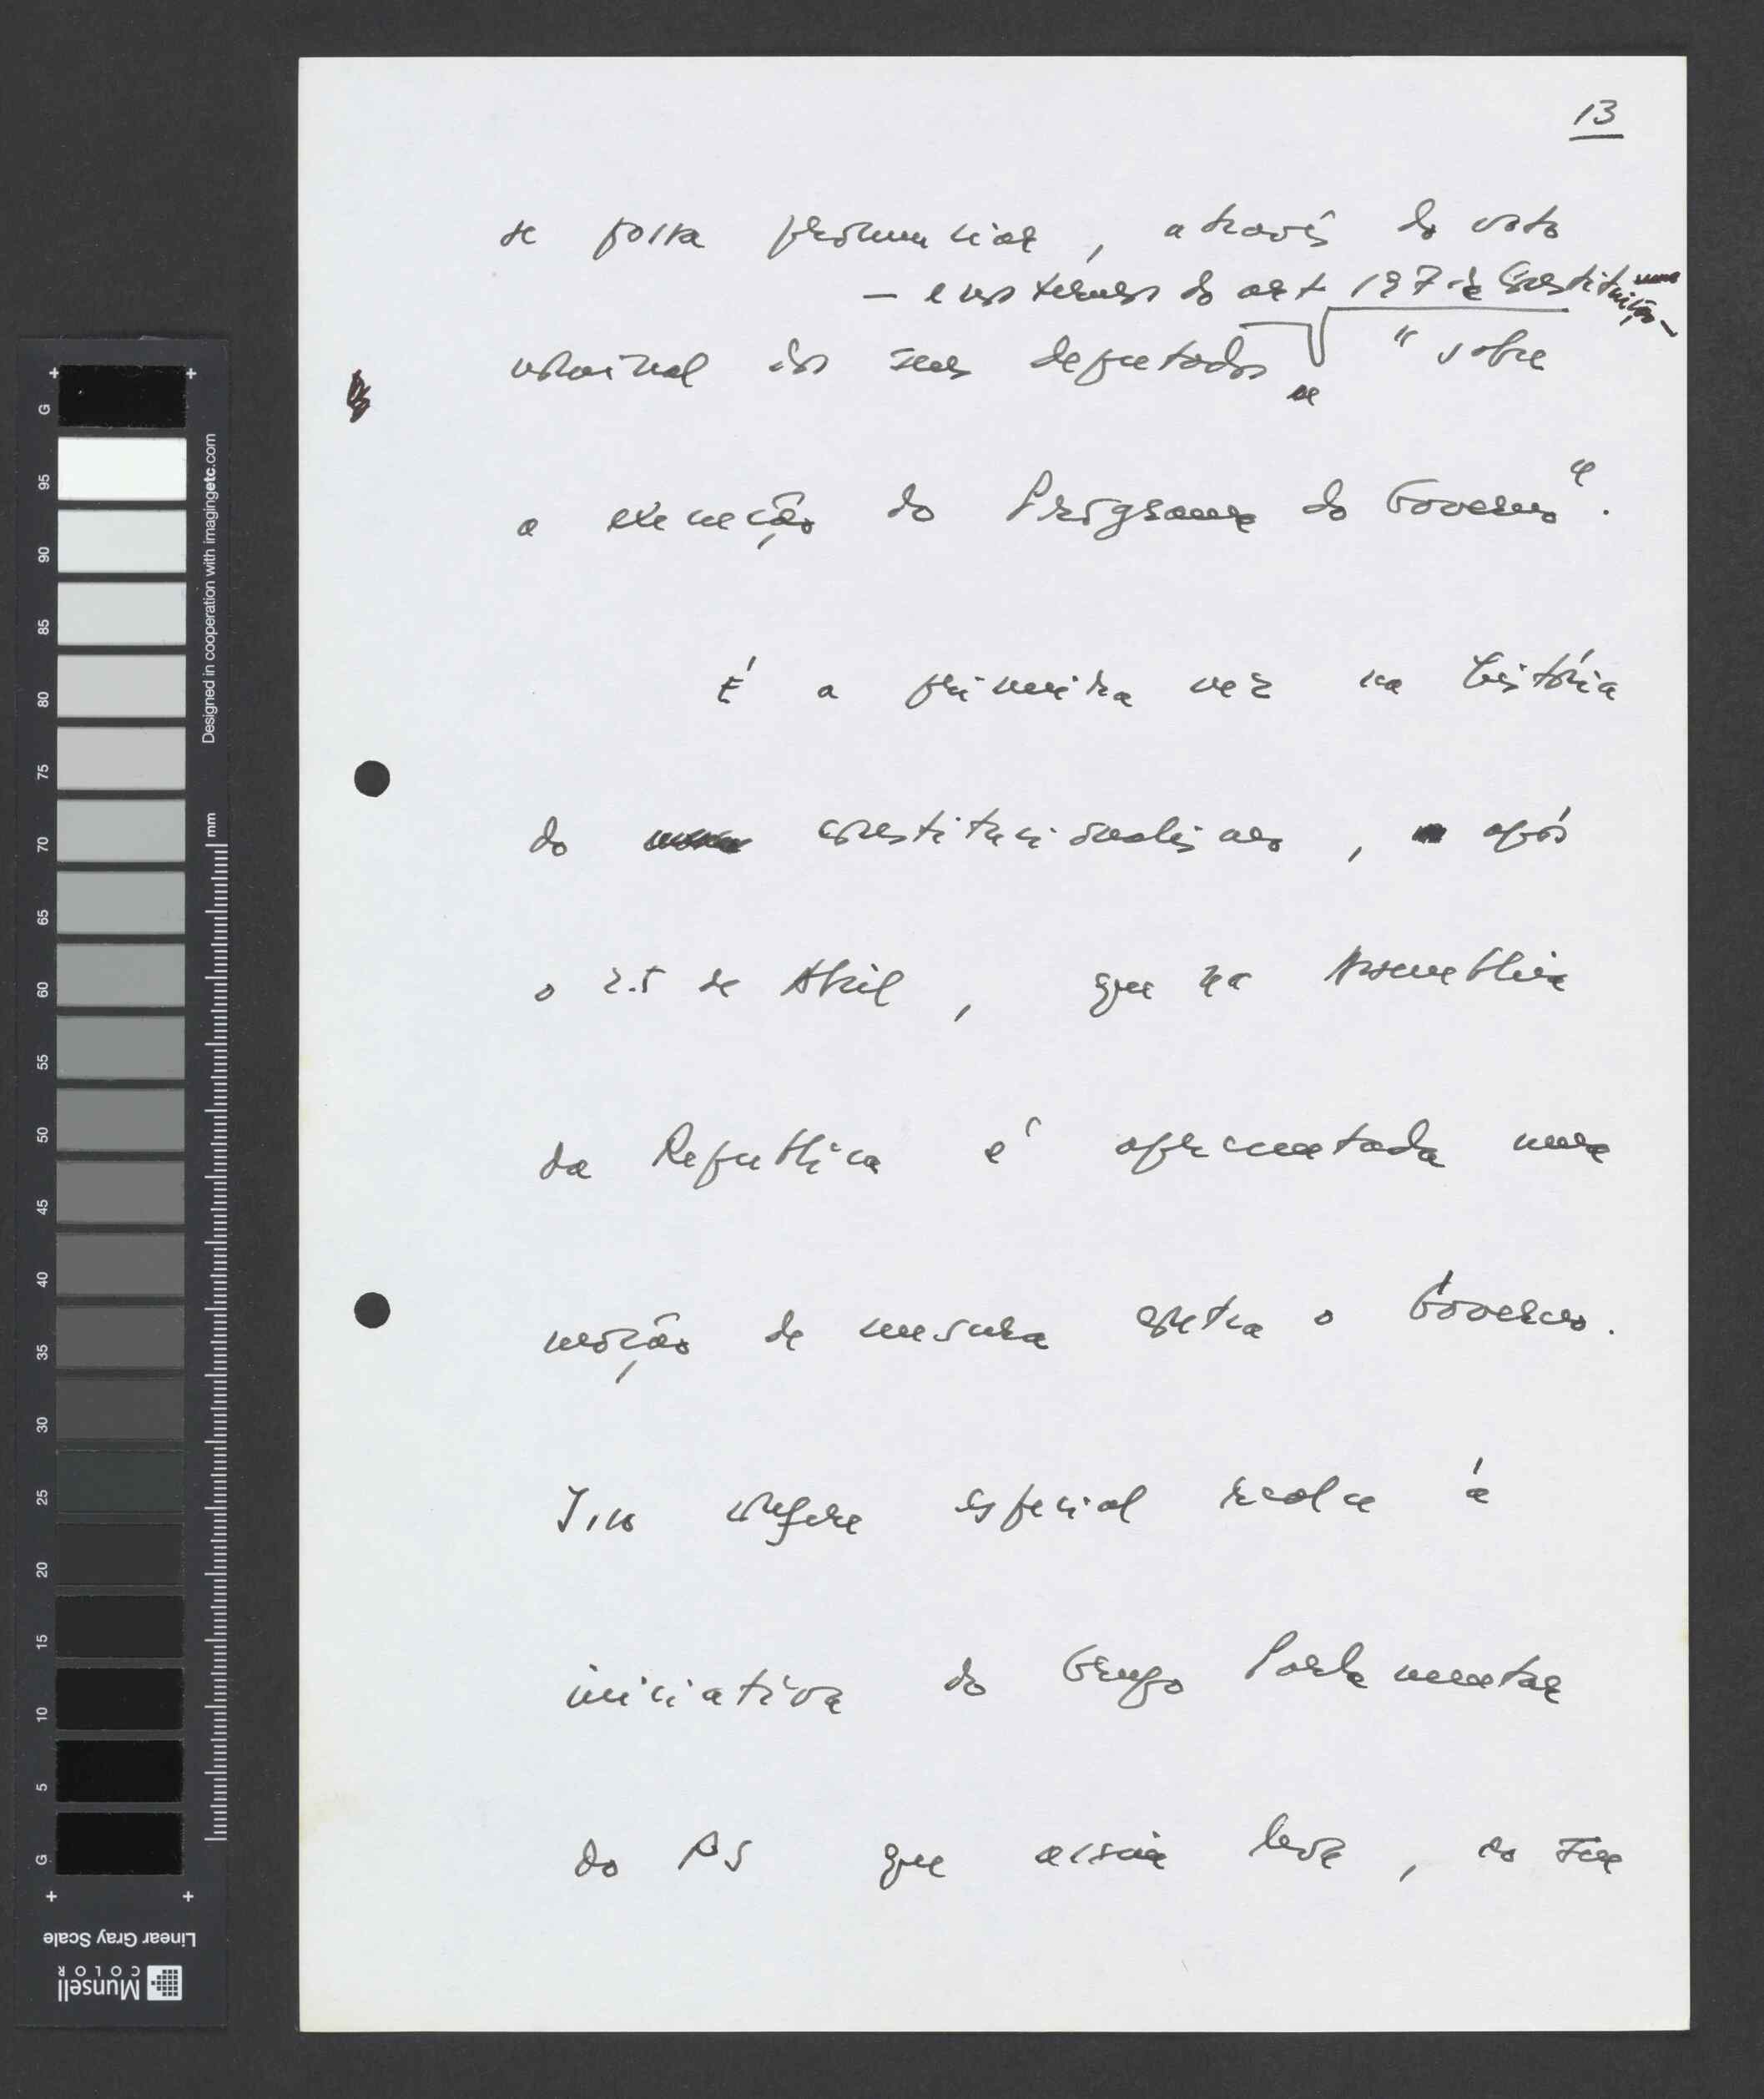 13
se possa pronunciar, através do voto
— e nos termos do art 197 da Constituição —
nominal dos seus deputados " sobre
a execução do Programa do Governo".
É a primeira vez na história
do constitucionalismo, após
o 25 de Abril, que na Assembleia
da Republica é apresentada uma
moção de censura contra o Governo.
Isso confere especial realce à
iniciativa do Grupo Parlamentar
do PS que assim leva, ao
G
95
90
85
80
75
70
65
60
55
50
45
40
35
30
25
20
15
10
5
G
Designed in cooperation with imagingetc.com
mm
Linear Gray Scale
Munsell
COLOR